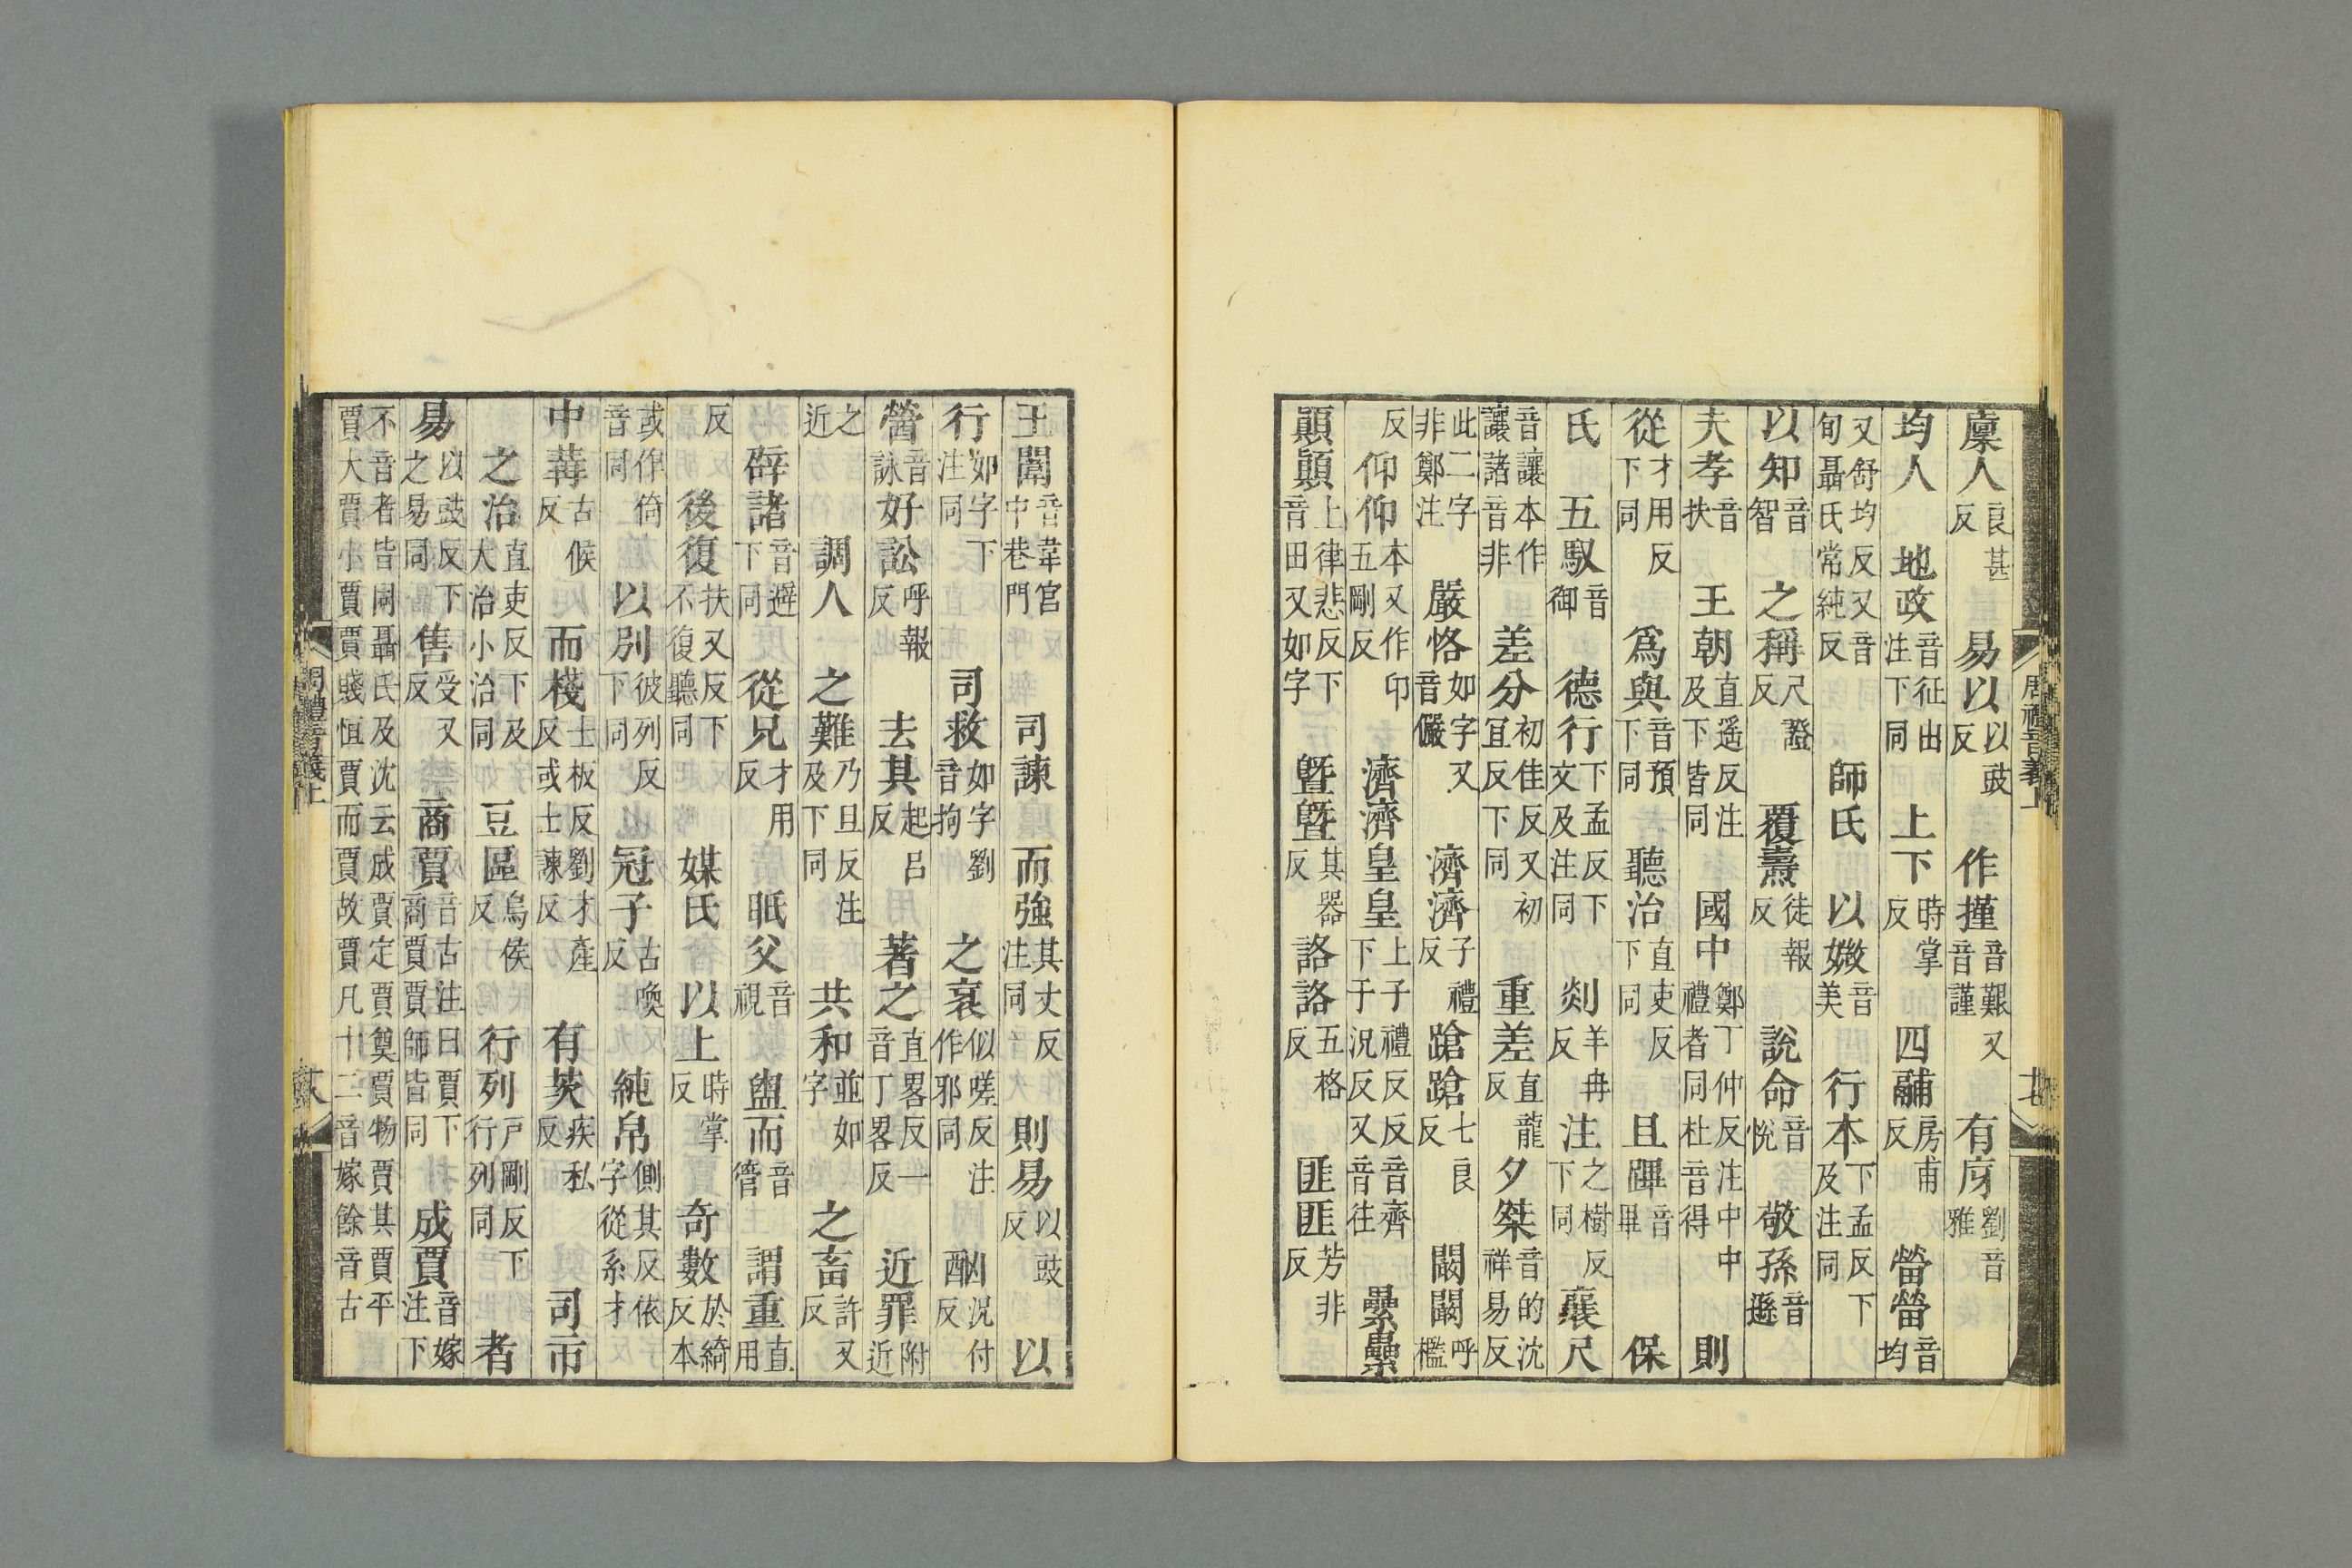 周禮音義上
廩人良甚反易以以豉反作㨷音艱又音謹有庌劉音雅
均人地政音征出注下同上下時掌反四鬴房甫反㽦㽦音均
又舒均反又音旬聶氏常純反師氏以媺音美行本下孟反下及注同
以知音智之稱尺證反覆燾徒報反說命音悅敬孫音遜
夫孝音扶王朝直遥反注及下皆同國中鄭丁仲反注中中禮者同杜音得則
從才用反下同爲與音預下同聽治直吏反下同且蹕音畢保
氏五馭音御德行下孟反下文及注同剡羊冉反注之樹反下同襄尺
音讓本作讓諸音非差分初佳反又初宜反下同重差直龍反夕桀音的沈祥易反
此二字非鄭注嚴恪如字又音儼濟濟子禮反蹌蹌七良反闞闞呼檻
反仰仰本又作卬五剛反濟濟皇皇上子禮反下于況反又音齊音往纍纍
顚顚上律悲反下音田又如字曁曁其器反詻詻五格反匪匪芳非反
王闈音韋宮中巷門司諫而強其丈反注同則易以豉反以
行如字下注同司救如字劉音拘之衺似嗟反注作邪同酗況付反
醟音詠好訟呼報反去其起呂反著之直畧反一音丁畧反近罪附近
之近調人之難乃旦反注及下同共和並如字之畜許又反
辟諸音避下同從兄才用反眂父音視盥而音管謂重直用
反後復扶又反下不復聽同媒氏以上時掌反奇數於綺反本
或作倚音同以別彼列反下同冠子古喚反純帛側其反依字從糸才
中冓古候反而棧士板反劉才產反或士諫反有茨疾私反司市
之治直吏反下及大治小治同豆區烏侯反行列戶剛反下行列同者
易以豉反下之易同售受又反商賈音古注曰賈下商賈賈師皆同成賈音嫁注下
不音者皆同聶氏及沈云成賈定賈奠賈物賈其賈平賈大賈小賈賈賤恒賈而賈故賈凡十二音嫁餘音古
周禮音義上